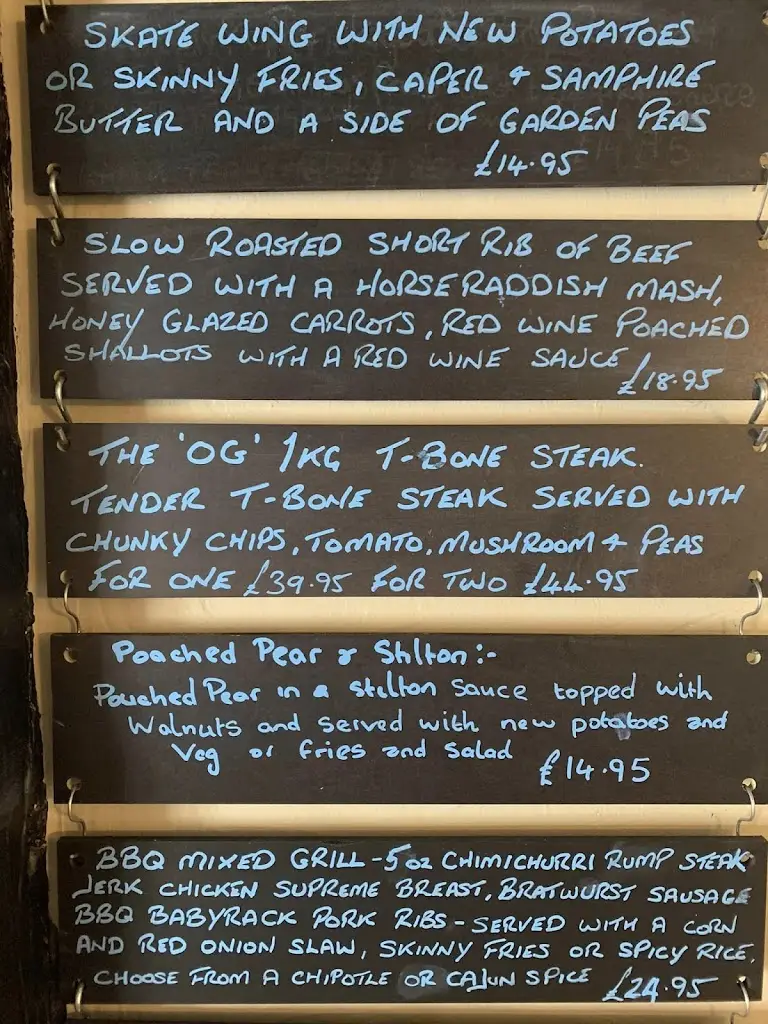 SKATE WING WITH NEW POTATOES
OR SKINNY FRIES, CAPER & SAMPHIRE
BUTTER AND A SIDE OF GARDEN PEAS
£14.95
SLOW ROASTED SHORT RIB OF BEEF
SERVED WITH A HORSERADDISH MASH,
HONEY GLAZED CARROTS, RED WINE POACHED
SHALLOTS WITH A RED WINE SAUCE
£18.95
THE 'OG' 1KG T-BONE STEAK.
TENDER T-BONE STEAK SERVED WITH
CHUNKY CHIPS, TOMATO, MUSHROOM & PEAS
FOR ONE £39.95 FOR TWO £44.95
Poached Pear & Stilton:-
Pouched Pear in a stilton sauce topped with
Walnuts and served with new potatoes and
Veg or fries and salad £14.95
BBQ MIXED GRILL - 5oz CHIMICHURRI RUMP STEAK
JERK CHICKEN SUPREME BREAST, BRATWURST SAUSAGE
BBQ BABYRACK PORK RIBS - SERVED WITH A CORN
AND RED ONION SLAW, SKINNY FRIES OR SPICY RICE.
CHOOSE FROM A CHIPOTLE OR CAJUN SPICE £24.95